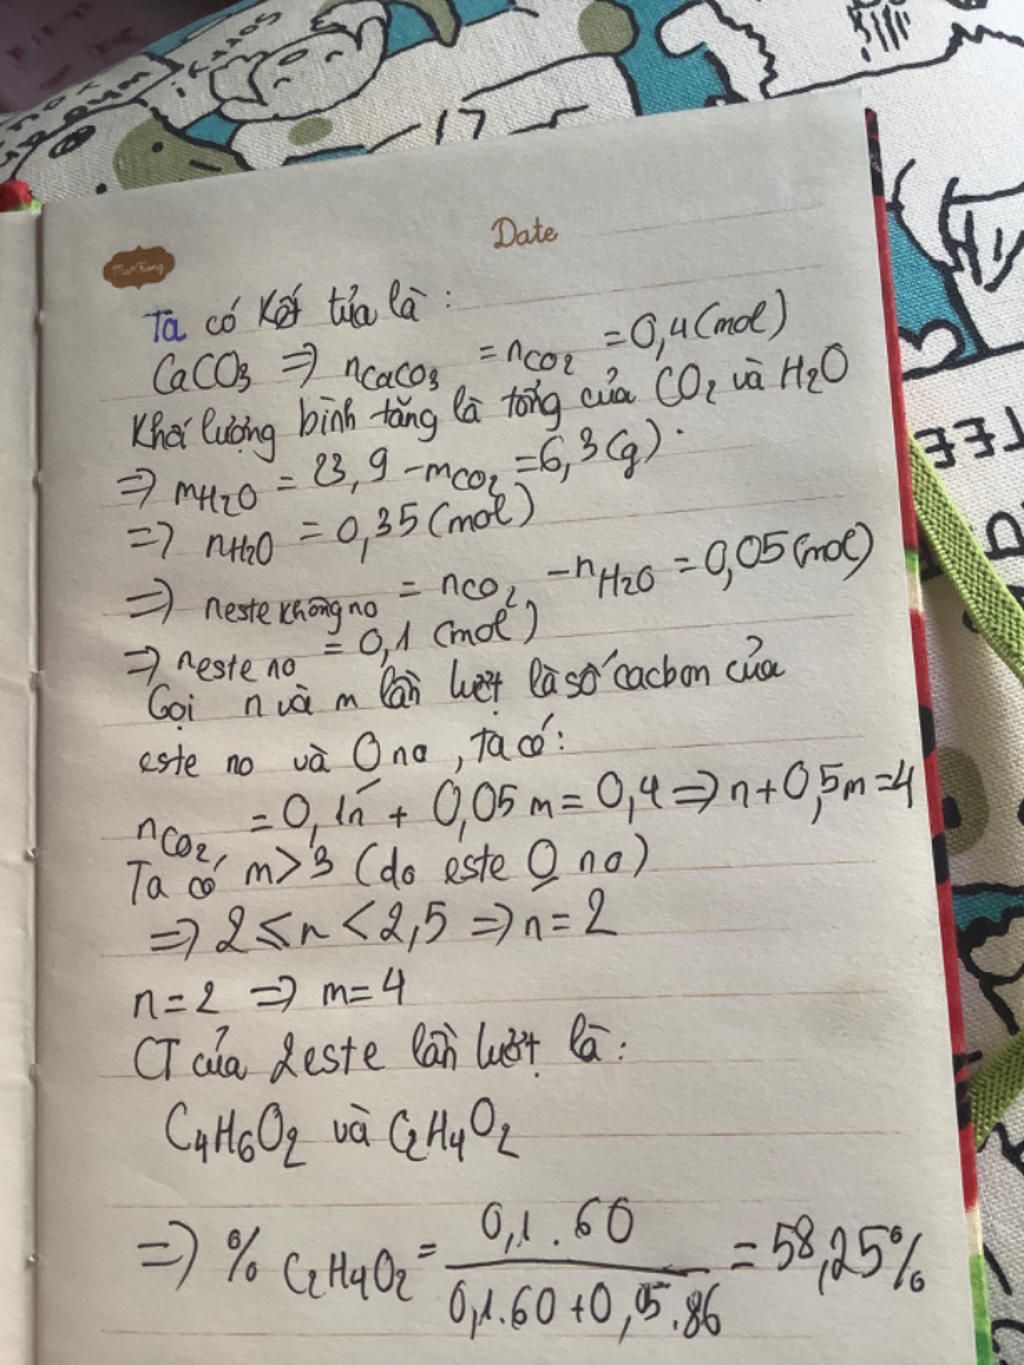 Date
Ta có kết tủa là :
CaCO3 => nCaCO3 = nCO2 = 0,4 (mol)
Khối lượng bình tăng là tổng của CO2 và H2O
=> mH2O = 23,9 - mCO2 = 6,3 (g).
=> nH2O = 0,35 (mol)
=> neste không no = nCO2 - nH2O = 0,05 (mol)
=> neste no = 0,1 (mol)
Gọi n và m lần lượt là số cacbon của
este no và 0 no, ta có :
nCO2 = 0,1n + 0,05 m = 0,4 => n + 0,5m = 4
Ta có m > 3 (do este 0 no)
=> 2 ≤ n < 2,5 => n = 2
n = 2 => m = 4
CT của 2 este lần lượt là :
C4H6O2 và C2H4O2
=> % C2H4O2 = 0,1 . 60 / 0,1.60 + 0,05.86 = 58,25%